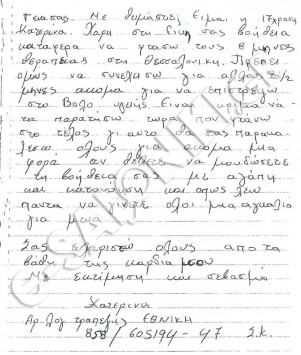 Γειασας. Με θυμάστε; Ειμαι η 17χρονη
Κατερινα Χαρη στη δικη σας βοήθεια
καταφερα να φτασω τους 8 μηνες
θεραπειας στη Θεσσαλονικη. Πρεπει
ομως να συνεχισω για αλλους 2 1/2
μηνες ακομα για να επιστρεψω
στο Βολο υγιής. Ειναι κριμα να
τα παρατησω τωρα που φτανω
στο τελος γι αυτο θα σας παρακα-
λεσω ολους για ακομα μια
φορα αν θελετε να μου δωσετε
τη βοήθεια σας με αγάπη
και κατανοηση και οπως λεω
παντα να γινετε ολοι μια αγκαλια
για μενα
Σας ευχαριστώ ολους απο τα
βαθη της καρδια μου
Με εκτιμηση και σεβασμο
Κατερινα
Αρ. λογ τραπεζης ΕΘΝΙΚΗ
858/605194-47 Σ.Κ.